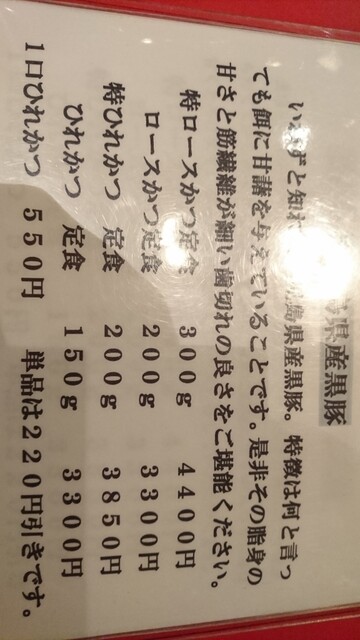 県産黒豚
いわずと知れ 島県産黒豚。特徴は何と言っ
ても餌に甘藷を与えていることです。是非その脂身の
甘さと筋繊維が細い歯切れの良さをご堪能ください。
特ロースかつ定食 300g 4400円
ロースかつ定食 200g 3300円
特ひれかつ 定食 200g 3850円
ひれかつ 定食 150g 3300円
1口ひれかつ 550円 単品は220円引きです。